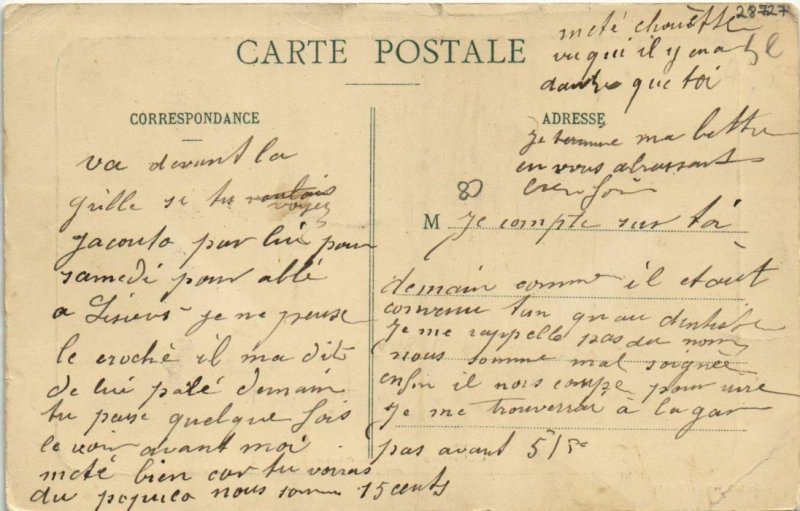 28727
CARTE POSTALE
CORRESPONDANCE
va devant la
grille si tu voulais
voyez
Jacouto par lui pour
samedi pour allé
a Lisieus je ne pense
le croché il ma dit
de lui palé demain
tu passe quelque fois
le voir avant moi
meté bien car tu vorras
du nous somme 15 cents
ADRESSE
M Je compte sur toi
demain comme il etait
convenu
Je me rappelle pas du nom
nous somme mal soignée
enfin il nous pour
Je me trouverrai à la gar
pas avant 5/5
meté chouette
vu qui il y en a
que toi
Je terminé ma lettre
en vous abrassant